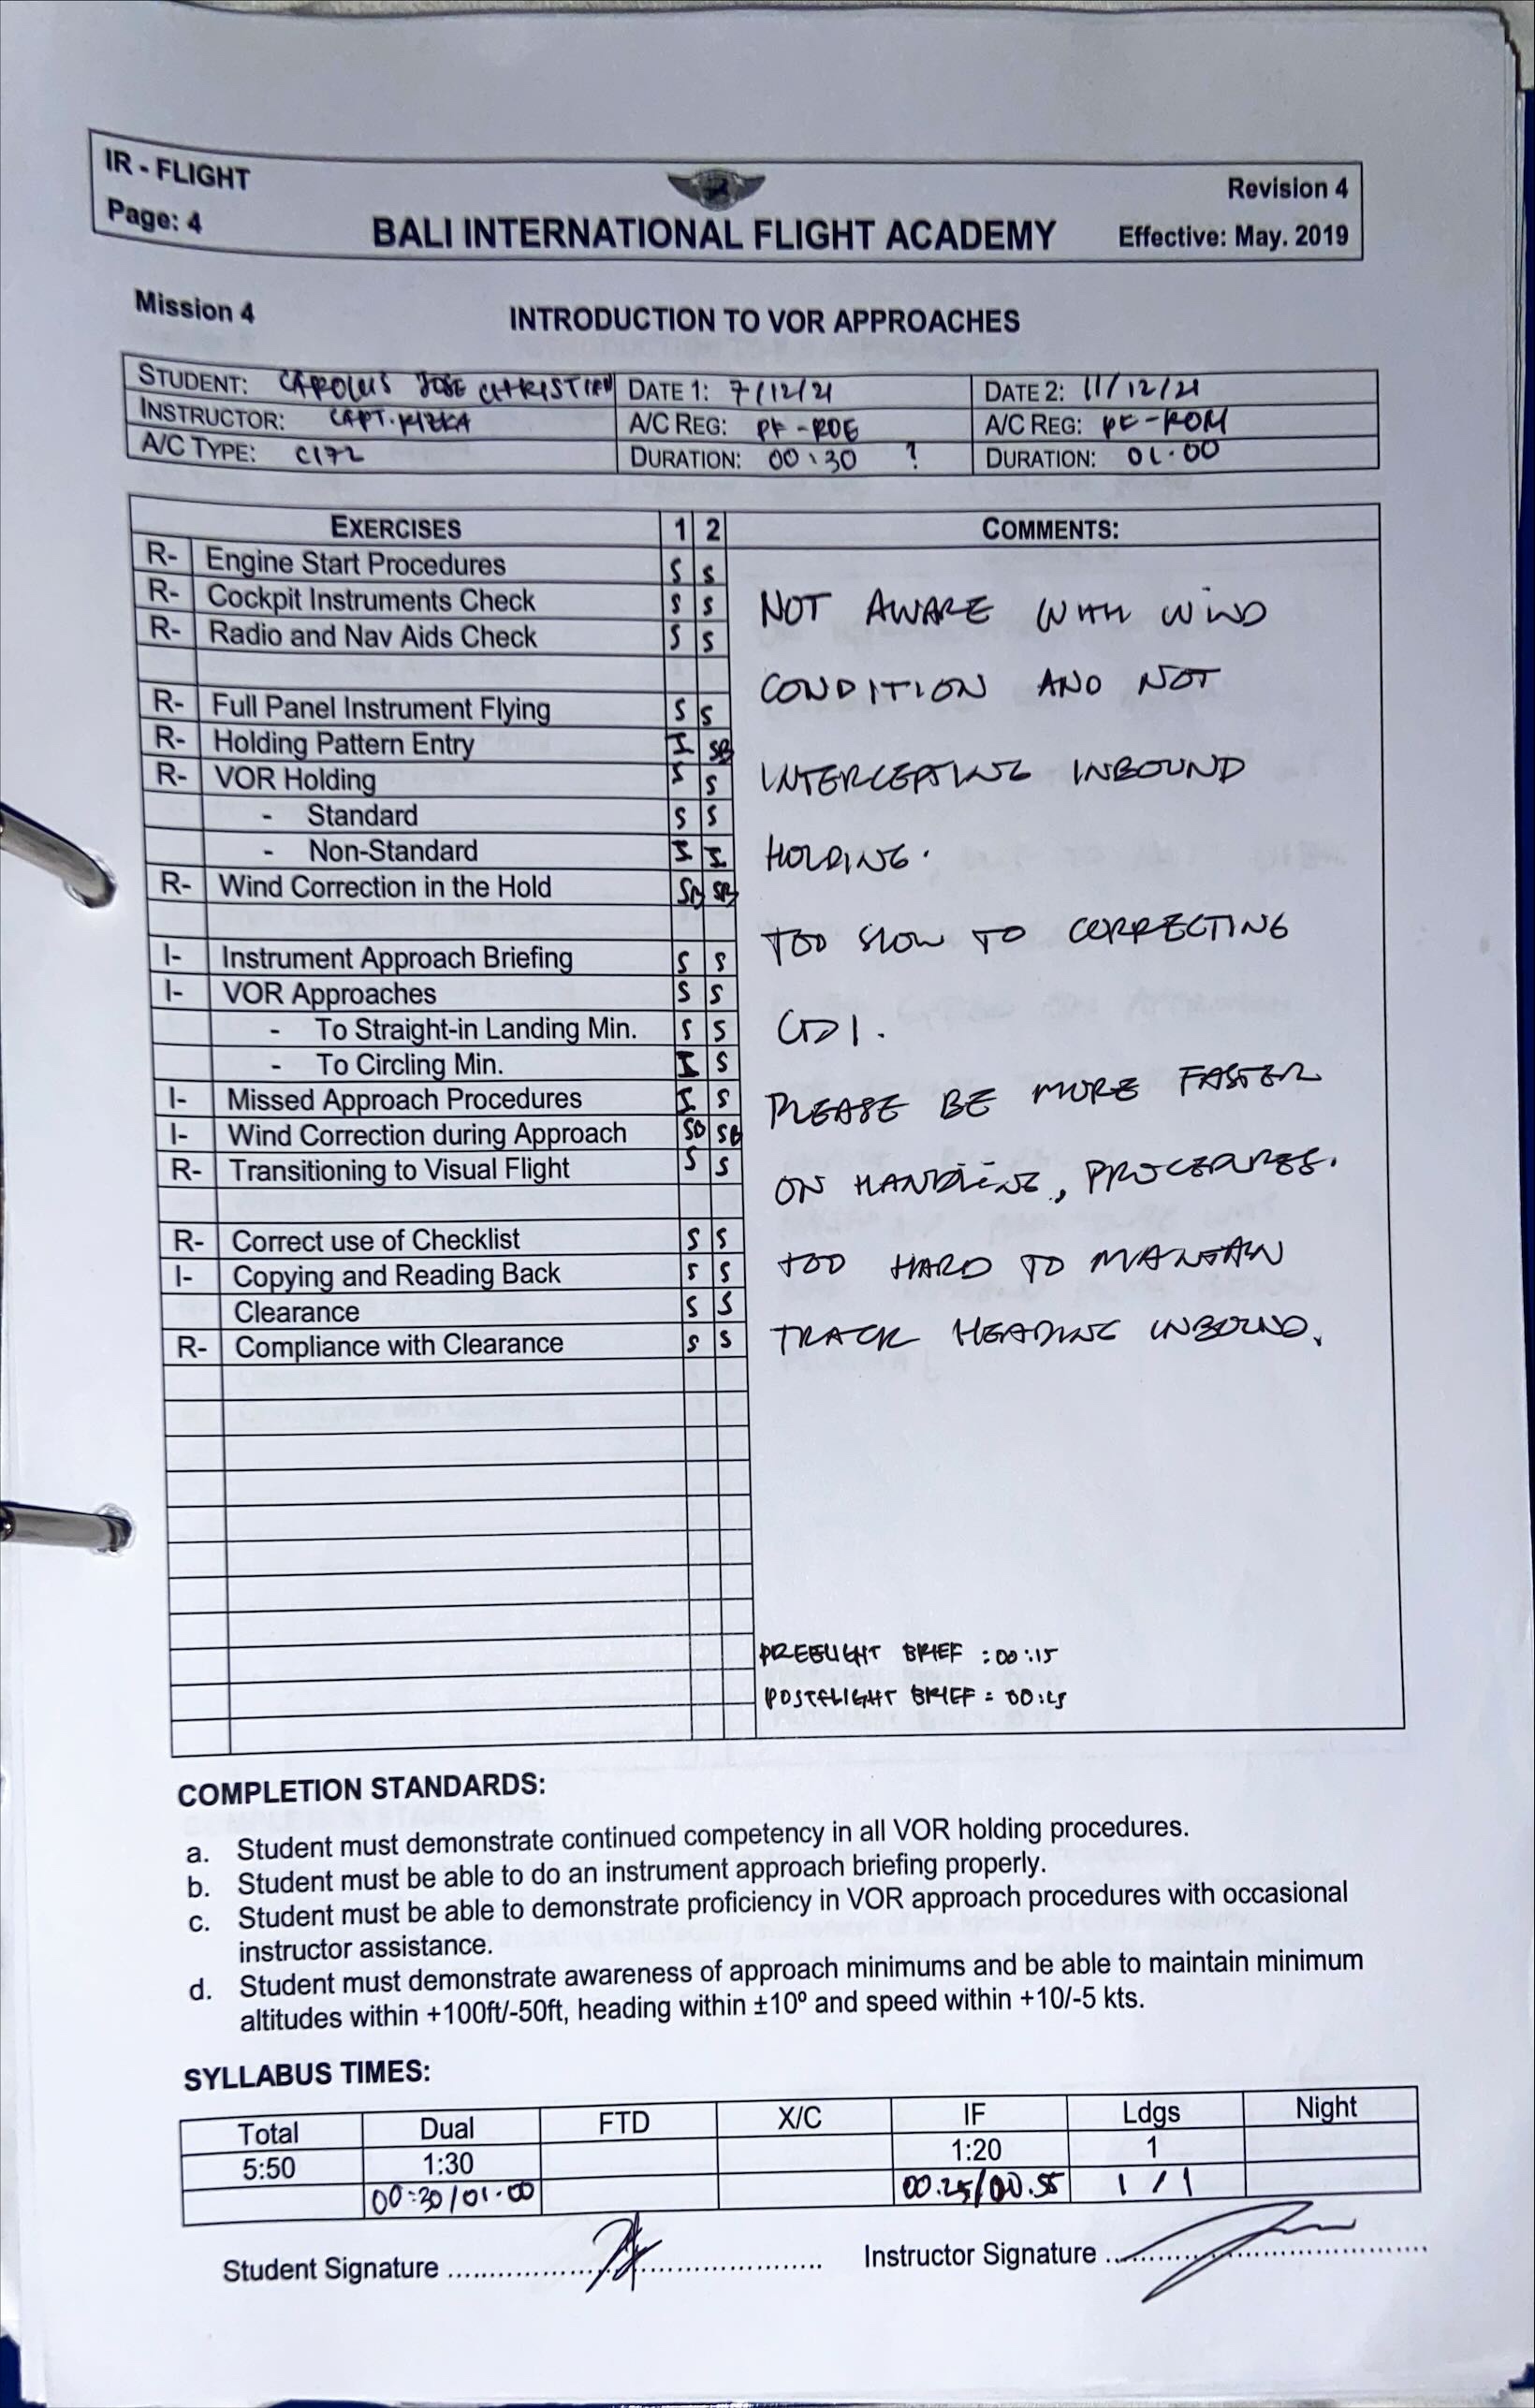 IR - FLIGHT
Page: 4
BALI INTERNATIONAL FLIGHT ACADEMY
Revision 4
Effective: May. 2019
Mission 4
INTRODUCTION TO VOR APPROACHES
STUDENT: CAROLUS JOSE CHRISTIAN DATE 1: 7/12/21 DATE 2: 11/12/21
INSTRUCTOR: CAPT. A/C REG: PK-ROE A/C REG: PK-ROM
A/C TYPE: C172 DURATION: 00:30 ? DURATION: 01.00
EXERCISES 1 2 COMMENTS:
R- Engine Start Procedures S S
R- Cockpit Instruments Check S S
R- Radio and Nav Aids Check S S
R- Full Panel Instrument Flying S S
R- Holding Pattern Entry I SB
R- VOR Holding S S
- Standard S S
- Non-Standard I I
R- Wind Correction in the Hold SB SB
I- Instrument Approach Briefing S S
I- VOR Approaches S S
- To Straight-in Landing Min. S S
- To Circling Min. I S
I- Missed Approach Procedures I S
I- Wind Correction during Approach SB SB
R- Transitioning to Visual Flight S S
R- Correct use of Checklist S S
I- Copying and Reading Back S S
Clearance S S
R- Compliance with Clearance S S
NOT AWARE WITH WIND
CONDITION AND NOT
INTERCEPTING INBOUND
HOLDING.
TOO SLOW TO CORRECTING
CDI.
PLEASE BE MORE FASTER
ON HANDLING, PROCEDURES.
TOO HARD TO MAINTAIN
TRACK HEADING INBOUND.
PREFLIGHT BRIEF : 00:15
POSTFLIGHT BRIEF = 00:15
COMPLETION STANDARDS:
a. Student must demonstrate continued competency in all VOR holding procedures.
b. Student must be able to do an instrument approach briefing properly.
c. Student must be able to demonstrate proficiency in VOR approach procedures with occasional
instructor assistance.
d. Student must demonstrate awareness of approach minimums and be able to maintain minimum
altitudes within +100ft/-50ft, heading within ±10º and speed within +10/-5 kts.
SYLLABUS TIMES:
Total Dual FTD X/C IF Ldgs Night
5:50 1:30 1:20 1
00:30/01.00 00.25/00.55 1 / 1
Student Signature ........................................ Instructor Signature ........................................